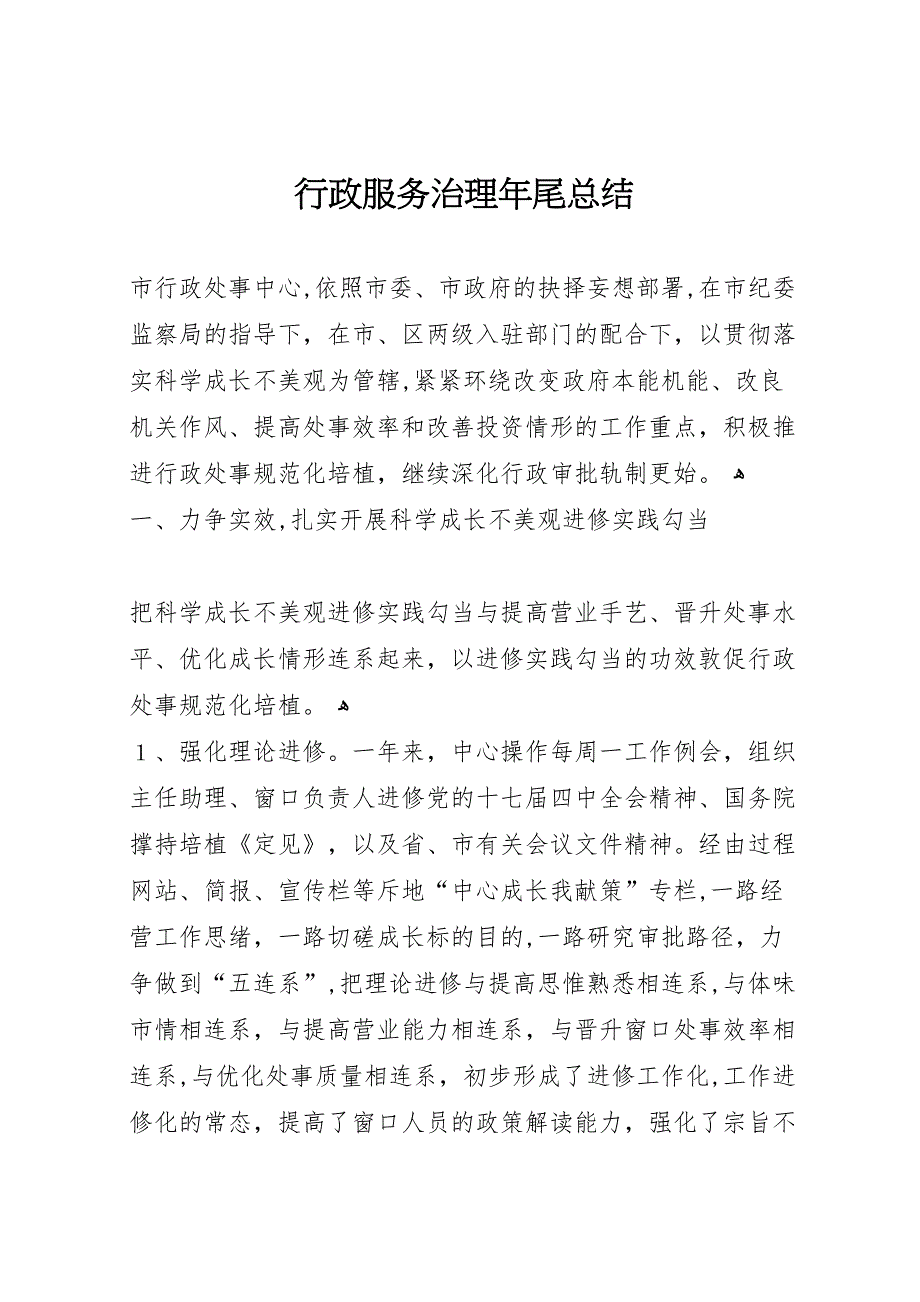 行政服务治理年尾总结
市行政处事中心,依照市委、市政府的抉择妄想部署,在市纪委
监察局的指导下，在市、区两级入驻部门的配合下，以贯彻落
实科学成长不美观为管辖,紧紧环绕改变政府本能机能、改良
机关作风、提高处事效率和改善投资情形的工作重点，积极推
进行政处事规范化培植，继续深化行政审批轨制更始。ﻫ
一、力争实效,扎实开展科学成长不美观进修实践勾当
把科学成长不美观进修实践勾当与提高营业手艺、晋升处事水
平、优化成长情形连系起来，以进修实践勾当的功效敦促行政
处事规范化培植。ﻫ
１、强化理论进修。一年来，中心操作每周一工作例会，组织
主任助理、窗口负责人进修党的十七届四中全会精神、国务院
撑持培植《定见》，以及省、市有关会议文件精神。经由过程
网站、简报、宣传栏等斥地“中心成长我献策”专栏,一路经
营工作思绪，一路切磋成长标的目的,一路研究审批路径，力
争做到“五连系”,把理论进修与提高思惟熟悉相连系,与体味
市情相连系，与提高营业能力相连系，与晋升窗口处事效率相
连系,与优化处事质量相连系，初步形成了进修工作化,工作进
修化的常态，提高了窗口人员的政策解读能力，强化了宗旨不